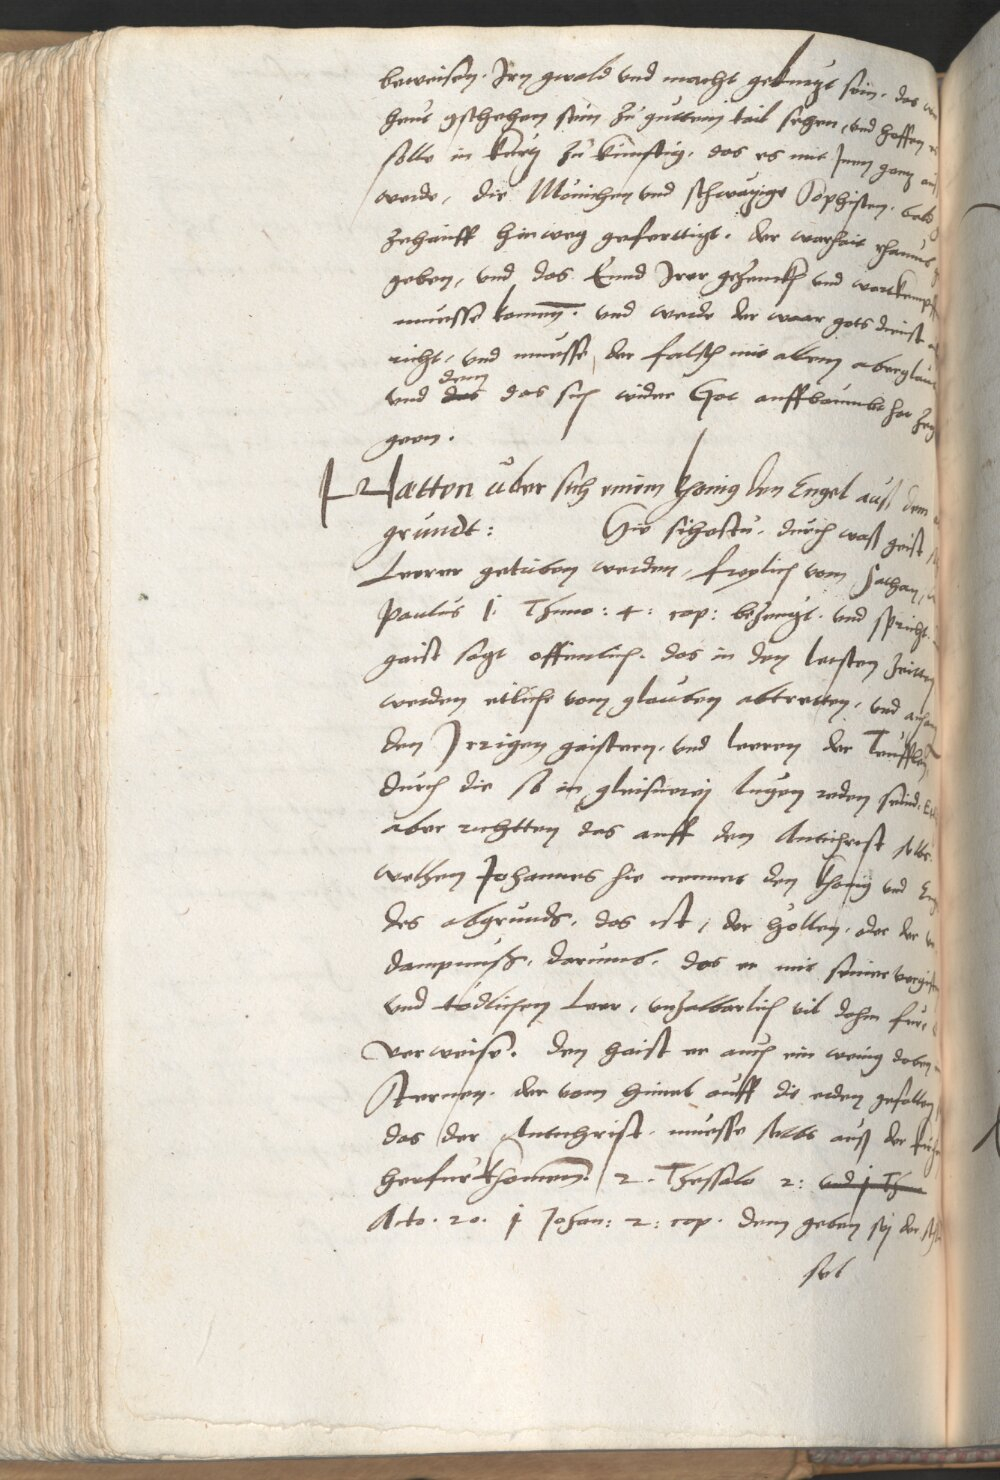 beweisen. Irn gwald vnd macht gekurtzt sein. das
heut gschehen sein zu guttem tail sehen, vnd hoffen
solle in kurtz zu künfftig. das es mit Inen gantz
werde, die Münichen vnd schwaigige Sophisten. bald
zuhauff hinweg gefertigt. der warheit rhaum
geben, vnd das Ennd Irer gezenckh vnd wortkempff
muesse komen. vnd werde der waar gots dienst
richt, vnd muesse, der falsch mit allem aberglaub
vnd dem das sich wider Got auffbaumbt hat
geen.
Hatten über sich einen khonig den Engel auß dem
grundt: Hie sihestu. durch waß geist
Leerer getriben werden, freylich vom Sathan,
Paulus j. Thimo: 4: cap: bezeugt. vnd spricht.
gaist sagt offenlich. das in den letsten Zeitten
werden etliche vom glauben abtretten, vnd
den Irrigen gaistern. vnd leeren der Teufflen
durch die so in gleisnerej lugen reden seind.
aber richtten das auff den Antichrist selbs.
welhen Johannes hie nennet den khonig vnd
des abgrunds. das ist, der hollen. oder der
dampnuß. darumb. das er mit seiner
vnd tödlichen Leer, vnzalbarlich vil dahin fur,
verweise. den haist er auch ein wenig doben
Sternen. der vom himel auff die erden gefallen
das der Antichrist. muesse selbs auß der
herfur khomen. 2. Thessalo 2: vnd j Th
Acto. 20. j Johan: 2: cap. dem geben sej der
sel